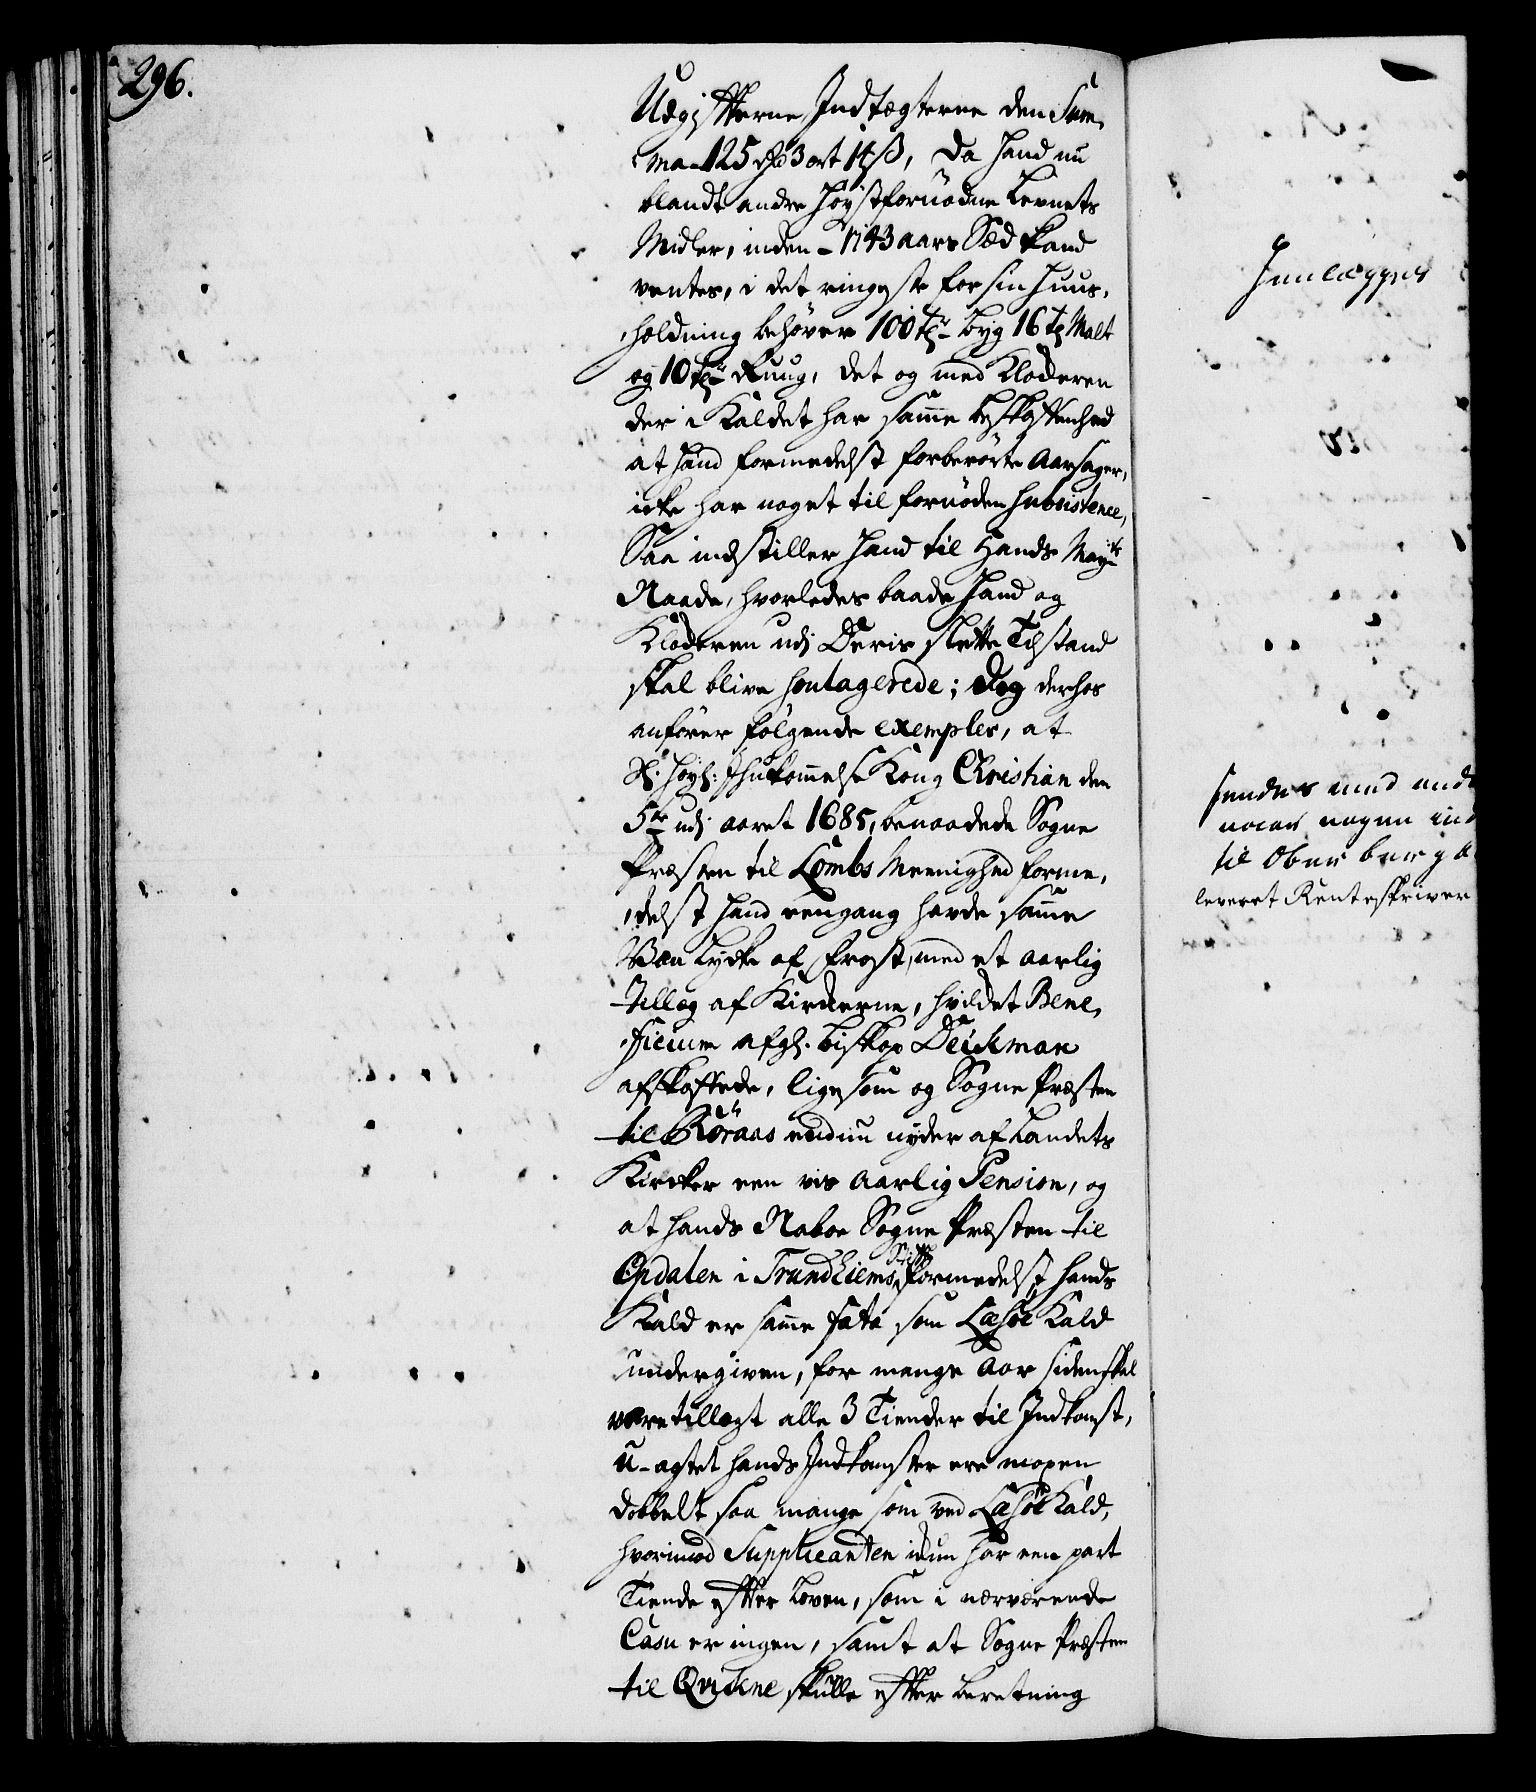 296.
Udgifterne Indtægterne den Sum¬
ma 125 rd 3 ort 14 ß, da hand nu
blandt andre høystfornødne Levnets
Midler, inden 1743 aars Sæd kand
ventes, i det ringeste for sin Huus¬
holdning behøver 100 tr Byg 16 tr Malt
og 10 tr Ruug, det og med Klockeren
der i Kaldet har samme beskaffenhed
at hand formedelst forberørte Aarsager,
icke har noget til fornøden Subsistence,
Saa indstiller hand til Hands Mayts
Naade, hvorledes baade hand og
Klockeren udj Deris slette Tilstand
skal blive soulagerede; Dog derhos
anfører følgende exempler, at
Sl: Høyl: Ihukommelse Kong Christian den
5te udj aaret 1685, benaadede Sogne
Præsten til Lombs Meenighed forme¬
delst hand eengang havde samme
Van Lycke af Frost, med et aarlig
Tillæg af Kirckerne, hvilcket Bene¬
ficium afgl. Biskop Deichman
afskaffede, ligesom og Sogne Præsten
til Röraas endnu nyder af Landets
Kircker een vis aarlig Pension, og
at hands Naboe Sogne Præsten til
Opdalen i Trundhiems Stift formedelst hands
Kald er samme fata som Læsøe Kald
undergiven, for mange Aar siden skal
være tillagt alle 3 Tiender til Indkomst,
u-agtet hands Indkomster ere mogen
dobbelt saa mange som ved Læsøe Kald,
hvorimod Supplicanten ickun har een part
Tiende efter Loven, som i nærværende
Casu er ingen, samt at Sogne Præsten
til Qvikne skulle efter beretning
Indlægges
sendes med
nogen
til Ober berg
leveret Renteskriver